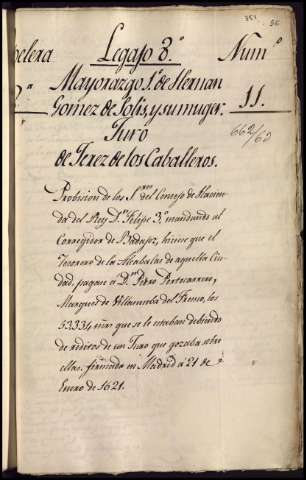 351. 56
pelera Legajo 3.º Num.º
Mayorazgo 1.º de Hernan
Gomez de Solis, y su muger. 11.
Juro
662/62
de Jerez de los Caballeros.
Provision de los S.res del Consejo de Hacien
da del Rey D.n Felipe 3.º mandando al
Corregidor de Badajoz, hiciese que el
Tesorero de las Alcabalas de aquella Ciu
dad, pagase á D.n Pedro Portocarrero,
Marques de Villanueba del Fresno, los
53334 mrs. que se le estaban debiendo
de reditos de un Juro que gozaba sobre
ellas, firmada en Madrid á 21 de
Enero de 1621.